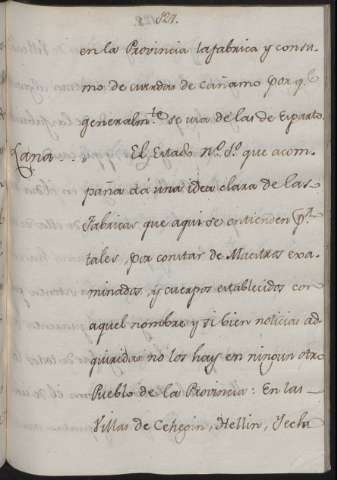 321.
en la Provincia la fabrica y consu-
mo de cuerdas de cañamo por q.e
generalm.te se usa de las de Esparto.
Lana. El Estado n.o 8.o que acom-
paña dá una idea clara de las
Fabricas que aqui se entienden p.r
tales, por constar de Maestros exa-
minados, y cuerpos establecidos con
aquel nombre y si bien noticias ad-
quiridas no los hay en ningun otro
Pueblo de la Provincia: En las
Villas de Cehegin, Hellin, Yecla